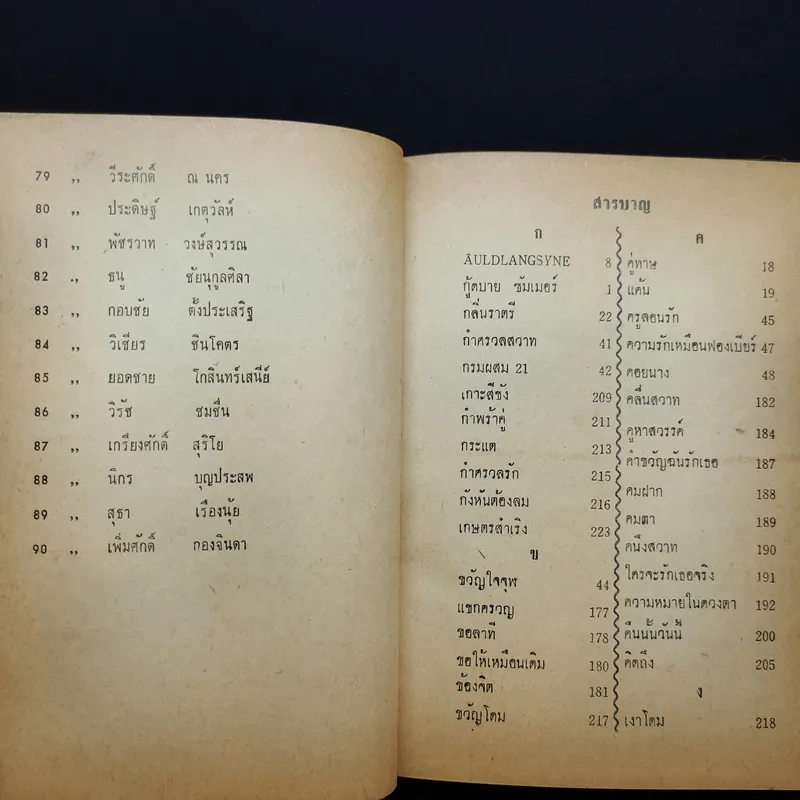 79 ,, วีระศักดิ์ ณ นคร
80 ,, ประดิษฐ์ เกตุวัลห์
81 ,, พัชรวาท วงษ์สุวรรณ
82 ., ธนู ชัยนุกูลศิลา
83 ,, กอบชัย ตั้งประเสริฐ
84 ,, วิเชียร ชินโคตร
85 ,, ยอดชาย โกสินทร์เสนีย์
86 ,, วิรัช ชมชื่น
87 ,, เกรียงศักดิ์ สุริโย
88 ,, นิกร บุญประสพ
89 ,, สุธา เรืองนุ้ย
90 ,, เพิ่มศักดิ์ กองจินดา
สารบาญ
ก
AULDLANGSYNE 8
กู้ดบาย ซัมเมอร์ 1
กลิ่นราตรี 22
กำศรวลสวาท 41
กรมผสม 21 42
เกาะสีชัง 209
กำพร้าคู่ 211
กระแต 213
กำศรวลรัก 215
กังหันต้องลม 216
เกษตรสำเริง 223
ข
ขวัญใจจุฬ 44
แขกครวญ 177
ขอลาที 178
ขอให้เหมือนเดิม 180
ข้องจิต 181
ขวัญโดม 217
ค
คู่ทาษ 18
แค้น 19
ครูสอนรัก 45
ความรักเหมือนฟองเบียร์ 47
คอยนาง 48
คลื่นสวาท 182
คูหาสวรรค์ 184
คำขวัญฉันรักเธอ 187
คมฝาก 188
คมตา 189
คนึงสวาท 190
ใครจะรักเธอจริง 191
ความหมายในดวงตา 192
คืนนั้นวันนี้ 200
คิดถึง 205
ง
เงาโดม 218